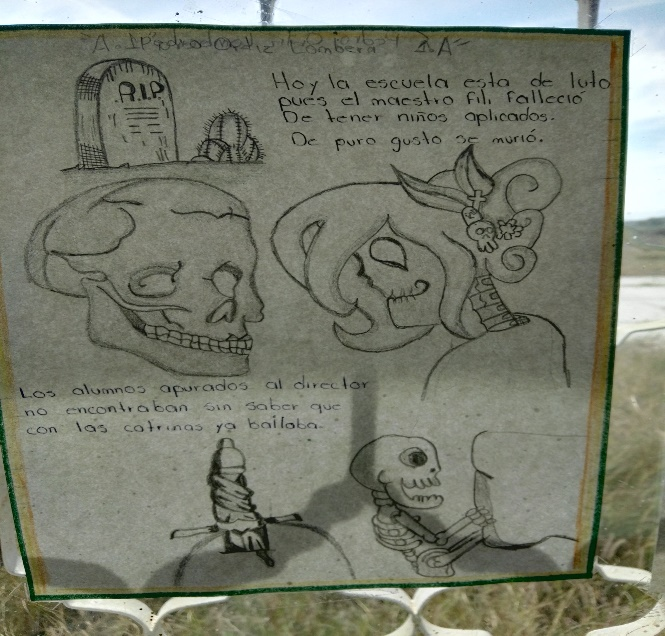 R.I.P
Hoy la escuela esta de luto
pues el maestro Fili Falleció
De tener niños aplicados.
De puro gusto se murió.
Los alumnos apurados al director
no encontraban sin saber que
con las catrinas ya bailaba.